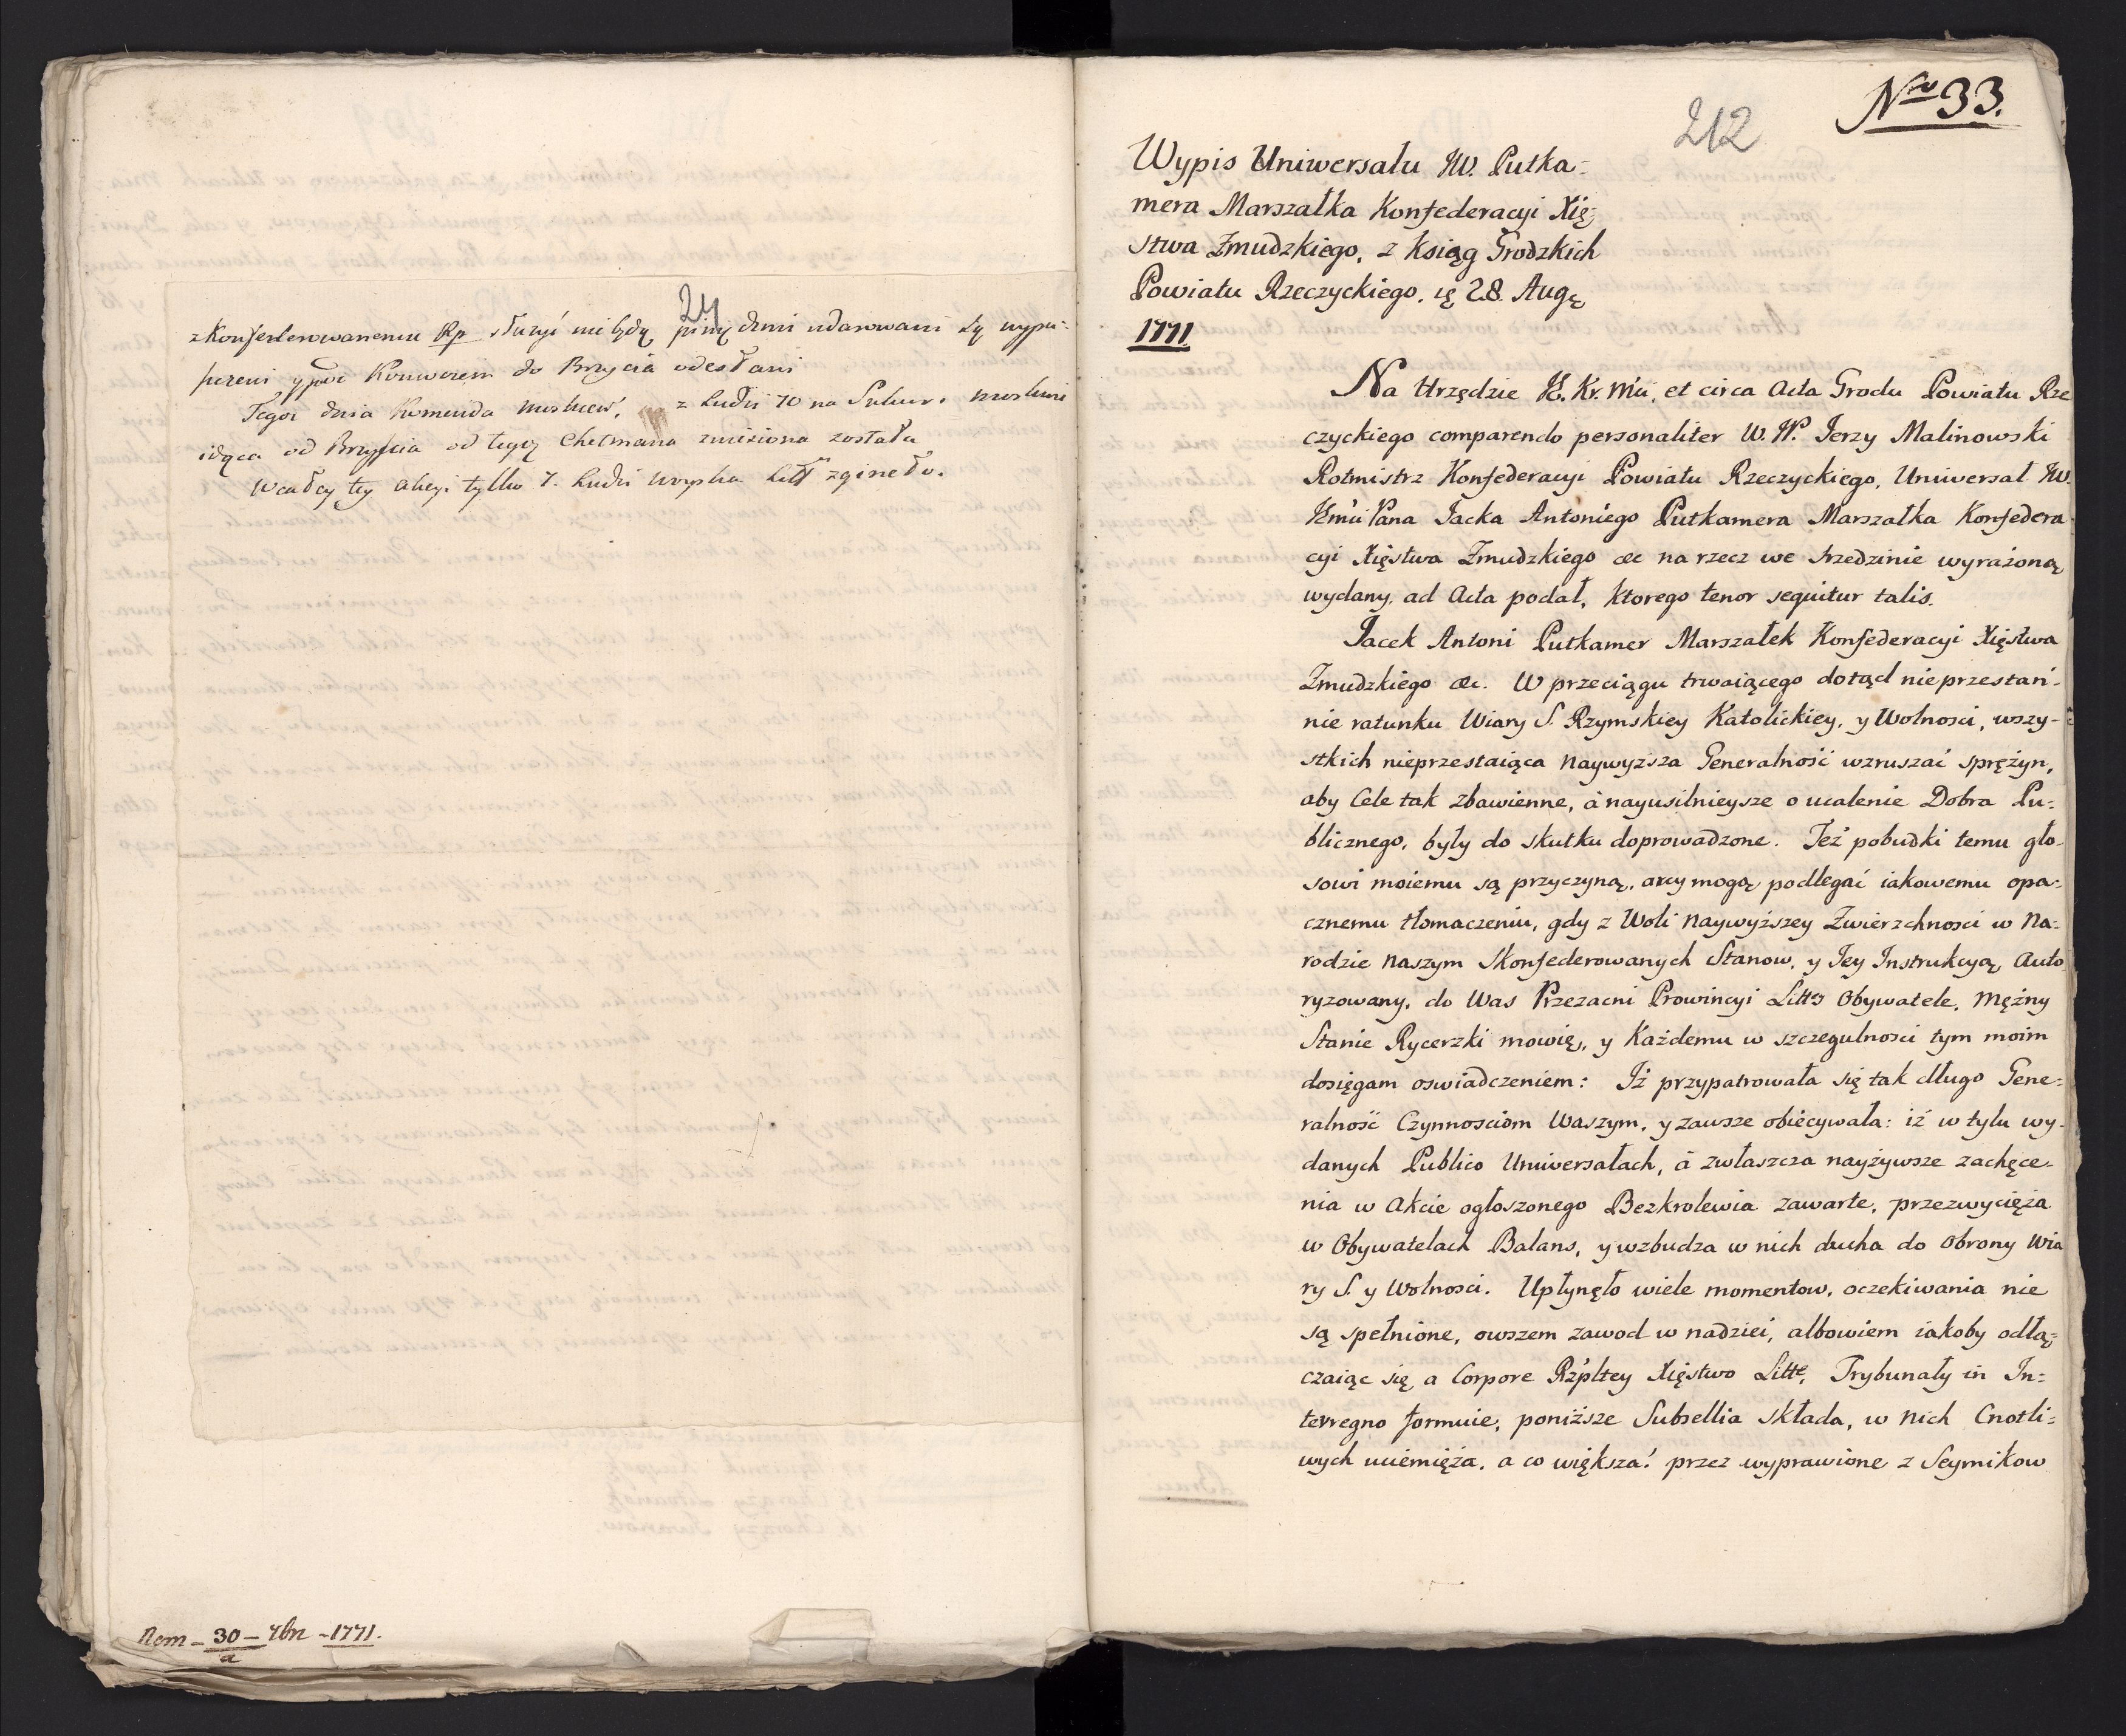 211
zKonfederowanemu Rp służyć nie będą, pinię dzmi udarowani są wypu-
szczeni y pod Konwoiem do Brzyścia odesłani
Tegoż dnia Komenda Moskiew. z Ludzi 70 na Sukurs Moskwie
idąca od Brzyścia od tegoż Chetmana zniesiona została
Wcałey tey akcyi tylko 7. Ludzi woyska Litt zgineło.
Rem – 30 – 7br – 1771.
a
Nro 33.
212
Wypis Uniwersału JW. Putka-
mera Marszałka Konfederacyi Xię-
stwa Zmudzkiego, z Ksiąg Grodzkich
Powiatu Rzeczyckiego, 28. Aug
1771.
Na Urzędzie JK. Kr. Mci, et circa Acta Grodu Powiatu Rze
czyckiego comparendo personaliter W. JP. Jerzy Malinowski
Rotmistrz Konfederacyi Powiatu Rzeczyckiego, Uniwersał JW.
JEmci Pana Jacka Antoniego Putkamera Marszałka Konfedera
cyi Xięstwa Zmudzkiego &c na rzecz we srzedzinie wyrażoną
wydany, ad Acta podał, ktorego tenor sequitur talis.
Jacek Antoni Putkamer Marszałek Konfederacyi Xięstwa
Zmudzkiego &c. W przeciągu trwaiącego dotąd nieprzestan-
nie ratunku Wiary S. Rzymskiey Katolickiey, y Wolnosci, wszy-
stkich nieprzestaiąca Naywyzsza Generalność wzruszać sprężyn,
aby Cele tak zbawienne, à nayusilnieysze o ucalenie Dobra Pu-
blicznego, były do skutku doprowadzone. Też pobudki temu gło-
sowi moiemu są przyczyną, aczy mogą podlegać iakowemu opa-
cznemu tłomaczeniu, gdy z Woli Naywyższey Zwierzchnosci w Na-
rodzie naszym Skonfederowanych Stanow, y Jey Instrukcyą Auto
ryzowany, do Was Przezacni Prowincyi Litts Obywatele, Mężny
Stanie Rycerzki mowię, y Każdemu w szczegulnosci tym moim
dosięgam oswiadczeniem: Iż przypatrowała się tak długo Gene-
ralność Czynnosciom Waszym, y zawsze obiecywała: iż w tylu wy-
danych Publico Uniwersałach, à zwłaszcza nayżywsze zachęce-
nia w Akcie ogłoszonego Bezkrolewia zawarte, przezwycięża
w Obywatelach Balans, y wzbudza w nich ducha do Obrony Wia
ry S. y Wolnosci. Upłynęło wiele momentow, oczekiwania nie
są spełnione, owszem zawod w nadziei, albowiem iakoby odłą-
czaiąc się a Corpore Rzpltey Xięstwo Litte, Trybunały in In-
terregno formuie, poniższe Subsellia składa, w nich Cnotli-
wych uciemięża, a co większa! przez wyprawione z Seymikow